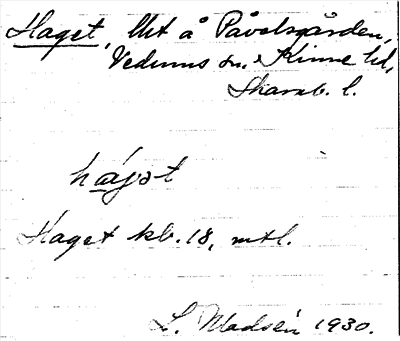 Haget, lht å Påvelsgården,
Vedums sn. Kinne hd,
Skarab. l.
hájət
Haget kb. 18, mtl.
L. Madsén 1930.